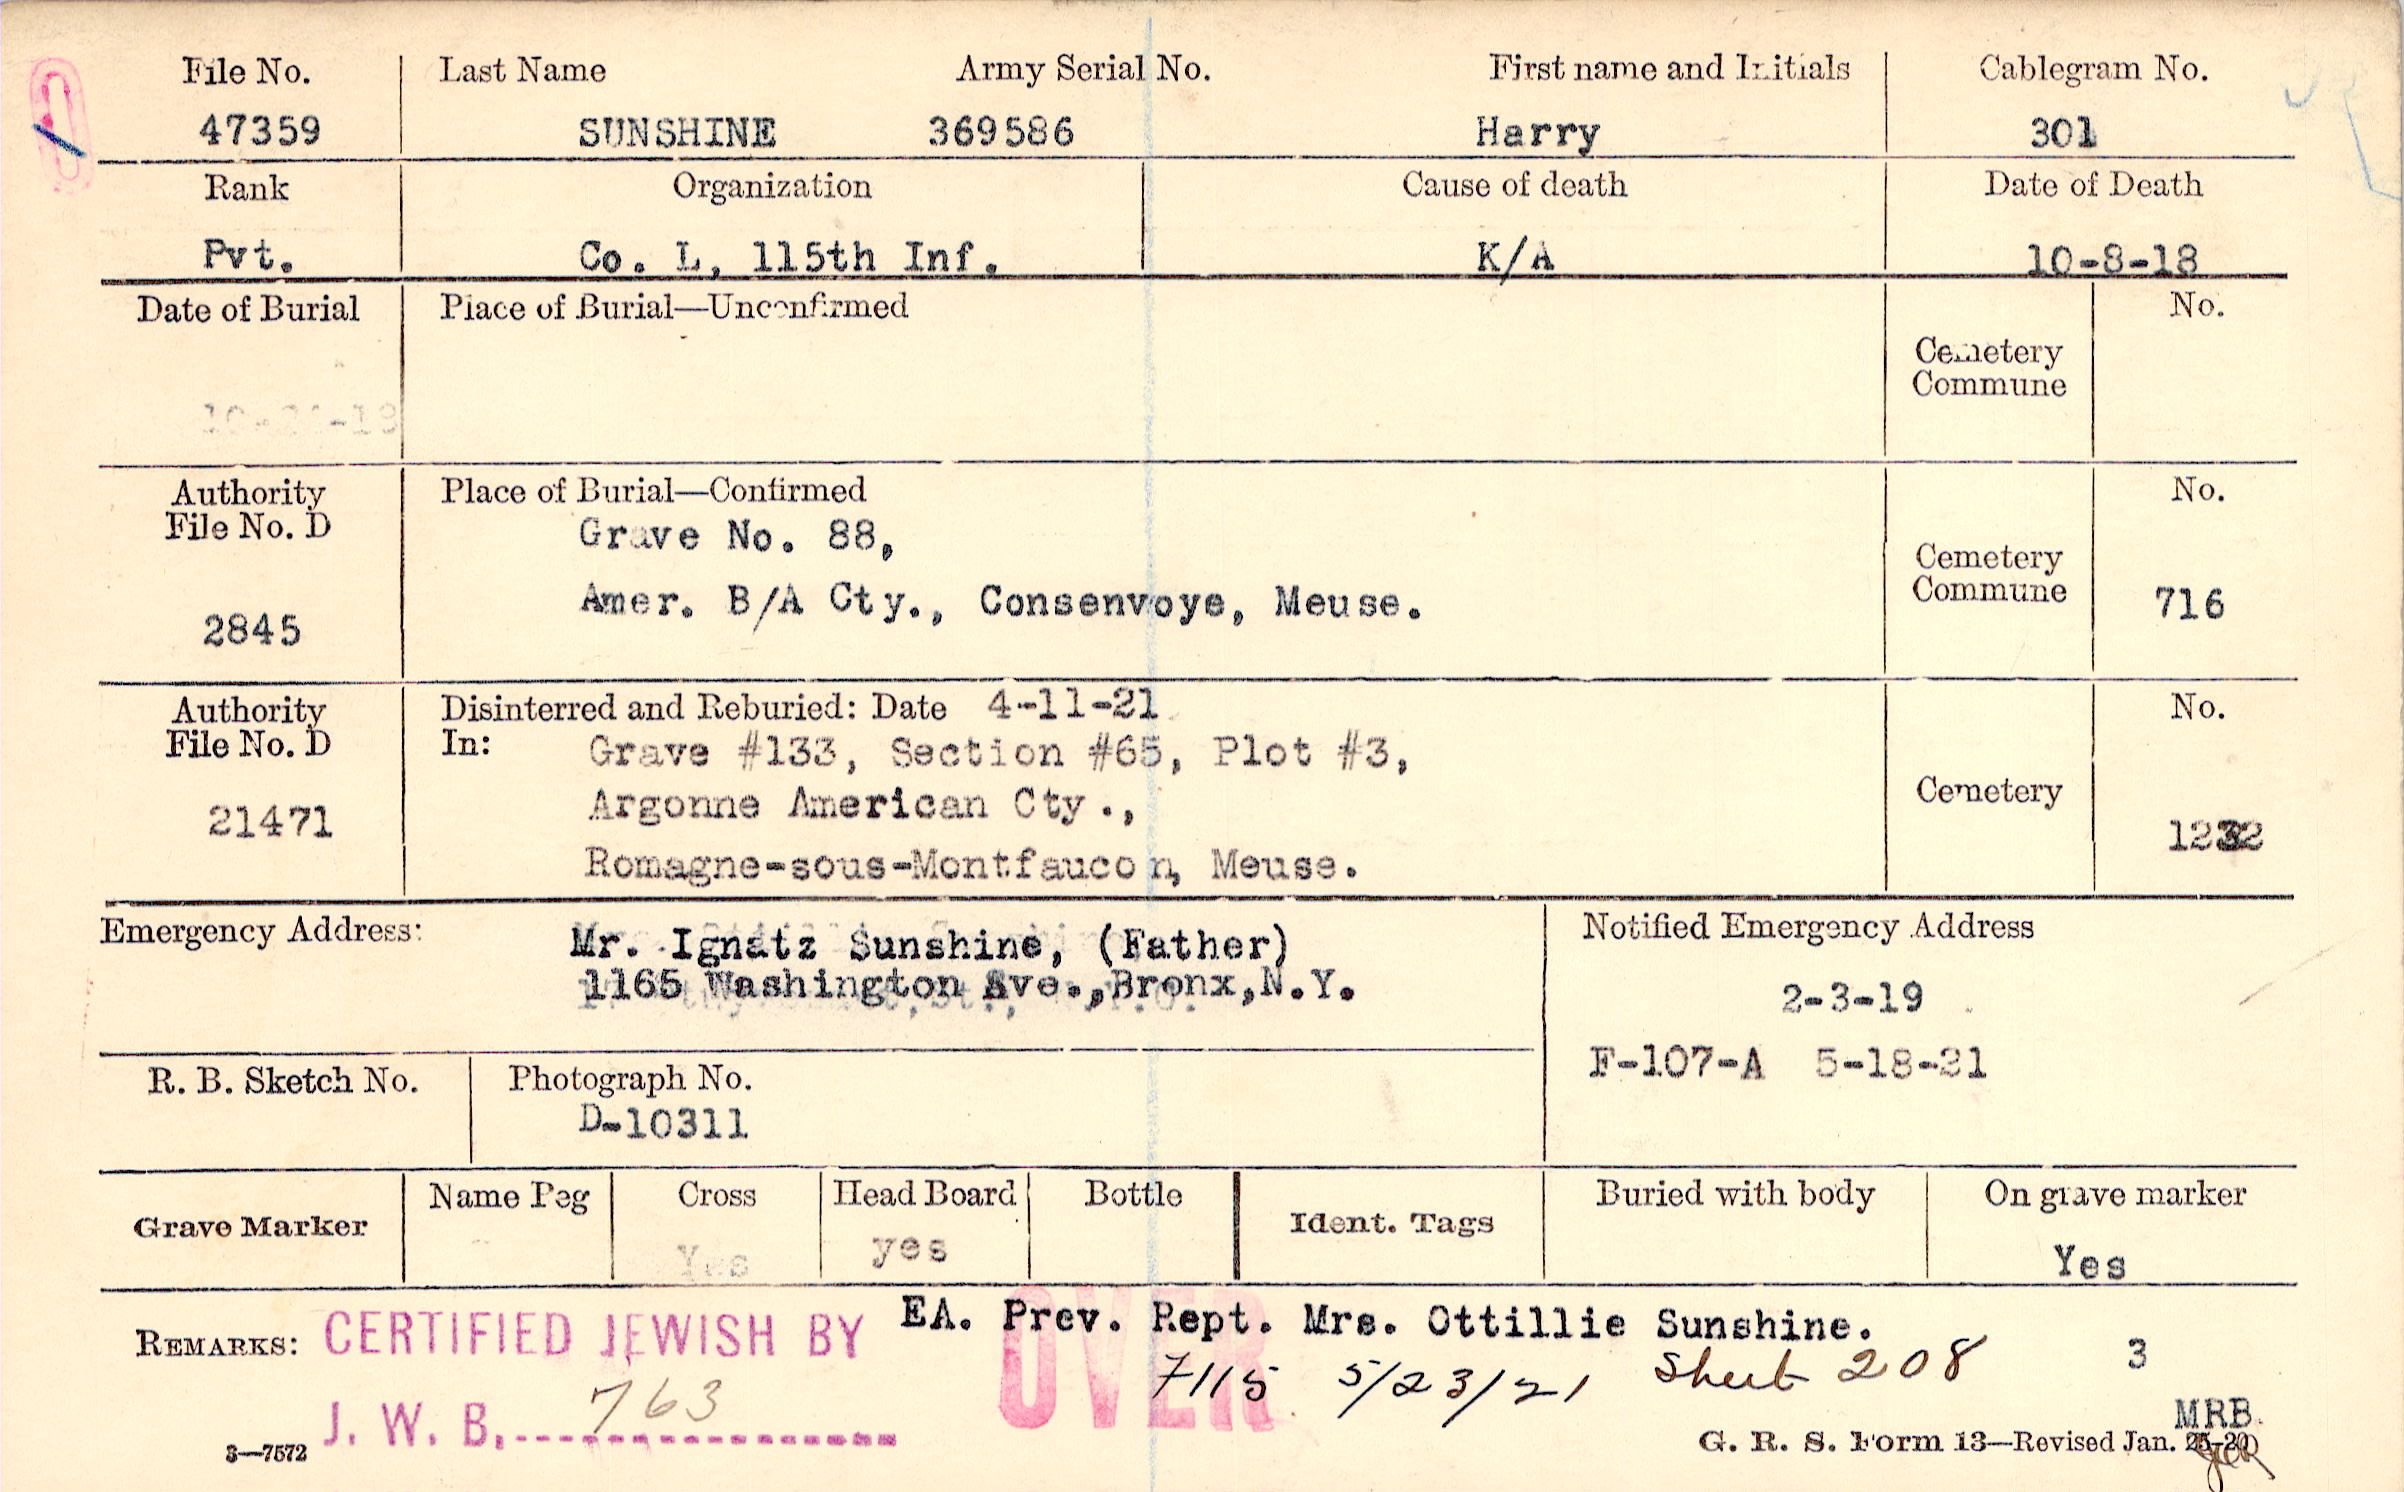 File No. Last Name Army Serial No. First name and Initials Cablegram No.
47359 SUNSHINE 369586 Harry 301
Rank Organization Cause of death Date of Death
Pvt. Co. L, 115th Inf. K/A 10-8-18
Date of Burial Place of Burial—Unconfirmed No.
Cemetery
Commune
Authority Place of Burial—Confirmed No.
File No. D Grave No. 88,
Cemetery
Commune
2845 Amer. B/A Cty., Consenvoye, Meuse. 716
Authority Disinterred and Reburied: Date 4-11-21 No.
File No. D In: Grave #133, Section #65, Plot #3,
21471 Argonne American Cty., Cemetery 1232
Romagne-sous-Montfaucon, Meuse.
Emergency Address: Mr. Ignatz Sunshine, (Father) Notified Emergency Address
1165 Washington Ave.,Bronx,N.Y. 2-3-19
F-107-A 5-18-21
R. B. Sketch No. Photograph No.
D-10311
Grave Marker Name Peg Cross Head Board Bottle Ident. Tags Buried with body On grave marker
Yes yes Yes
REMARKS: CERTIFIED JEWISH BY EA. Prev. Rept. Mrs. Ottillie Sunshine. 3
OVER
J. W. B. 763 7115 5/23/21 Sheet 208
MRB
3—7572 G. R. S. Form 13—Revised Jan. 25-20